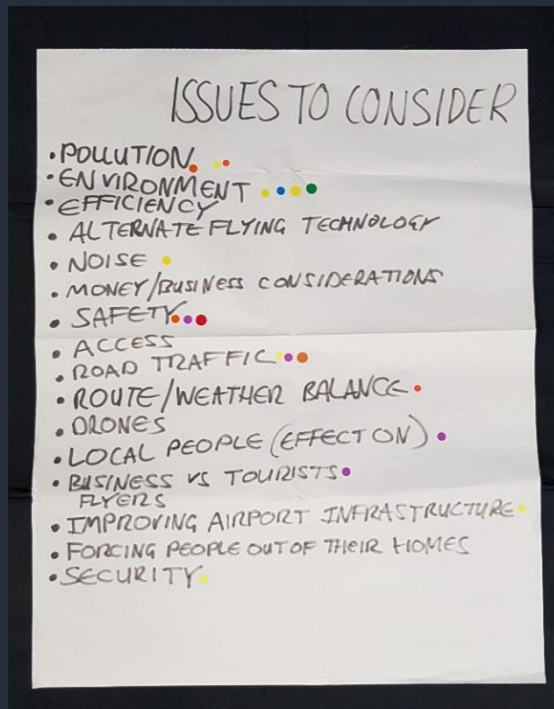 ISSUES TO CONSIDER
• POLLUTION
• ENVIRONMENT
• EFFICIENCY
• ALTERNATE FLYING TECHNOLOGY
• NOISE
• MONEY/BUSINESS CONSIDERATIONS
• SAFETY
• ACCESS
• ROAD TRAFFIC
• ROUTE/WEATHER BALANCE
• DRONES
• LOCAL PEOPLE (EFFECT ON)
• BUSINESS VS TOURISTS
FLYERS
• IMPROVING AIRPORT INFRASTRUCTURE
• FORCING PEOPLE OUT OF THEIR HOMES
• SECURITY